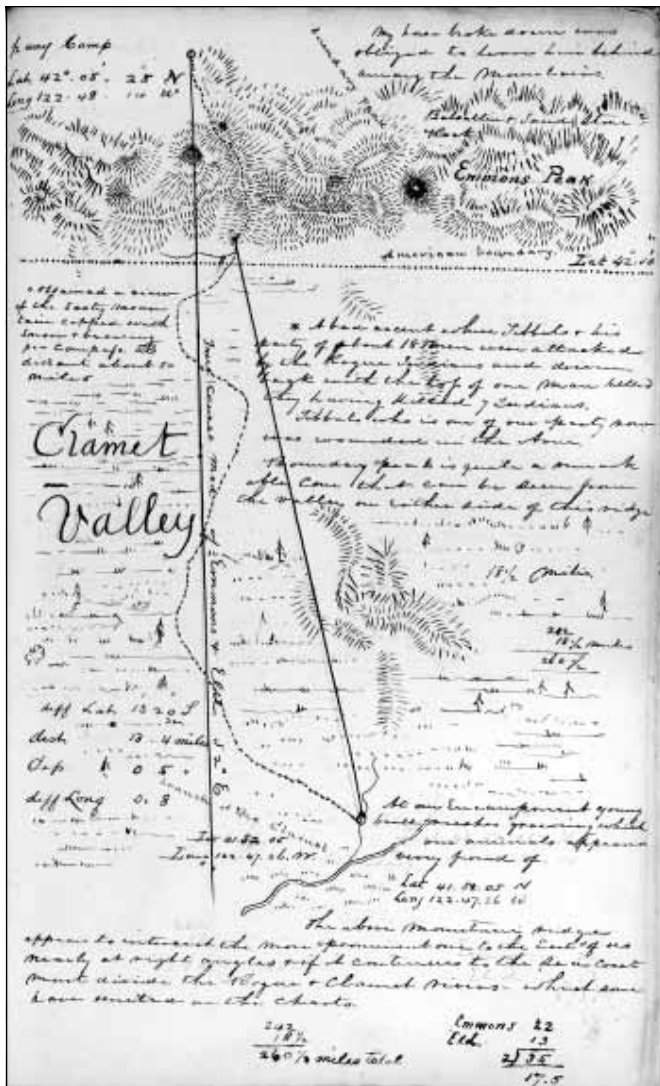 Camp
Lat 42°. 05'. 28 N
Long 122. 48. W
My broke down was
obliged to leave him behind
among the Mountains.
boundary
Basaltic & Sand Stone
Rock
Emmons Peak
American boundary. Lat 42°
obtained a view
of the
capped with
snow &
per Compass
distant about 50
miles
* A bad ascent where Tibbals & his
party of about 18 men were attacked
by the Rogue Indians and driven
back with the of one man killed
they having Killed 7 Indians.
Tibbals who is one of our party now
was wounded in the
Boundary peak is quite a remark
able Cone that can be seen from
the valley on either side of this ridge
Clamet
Valley
True Course of Emmons & Eld S 2° E
18½ miles
242
18½ miles
260½
diff Lat 13 20 S
dist 13. 4 miles
Dep 0 5
diff Long 0. 8
of the Clamet
Lat 41.52 05
Long 122.47.26. W.
At our Encampment young
growing which
our animals appear
very fond of
Lat 41.52.05 N
Long 122.47.26 W
The above Mountain ridge
appears to intersect the more prominent one to the East of us
nearly at right angles & if it continues to the Sea Coast
must divide the Rogue & Clamet rivers which some
have united on the Charts
242
18½
260½ miles total
Emmons 22
Eld. 13
2)35
17.5